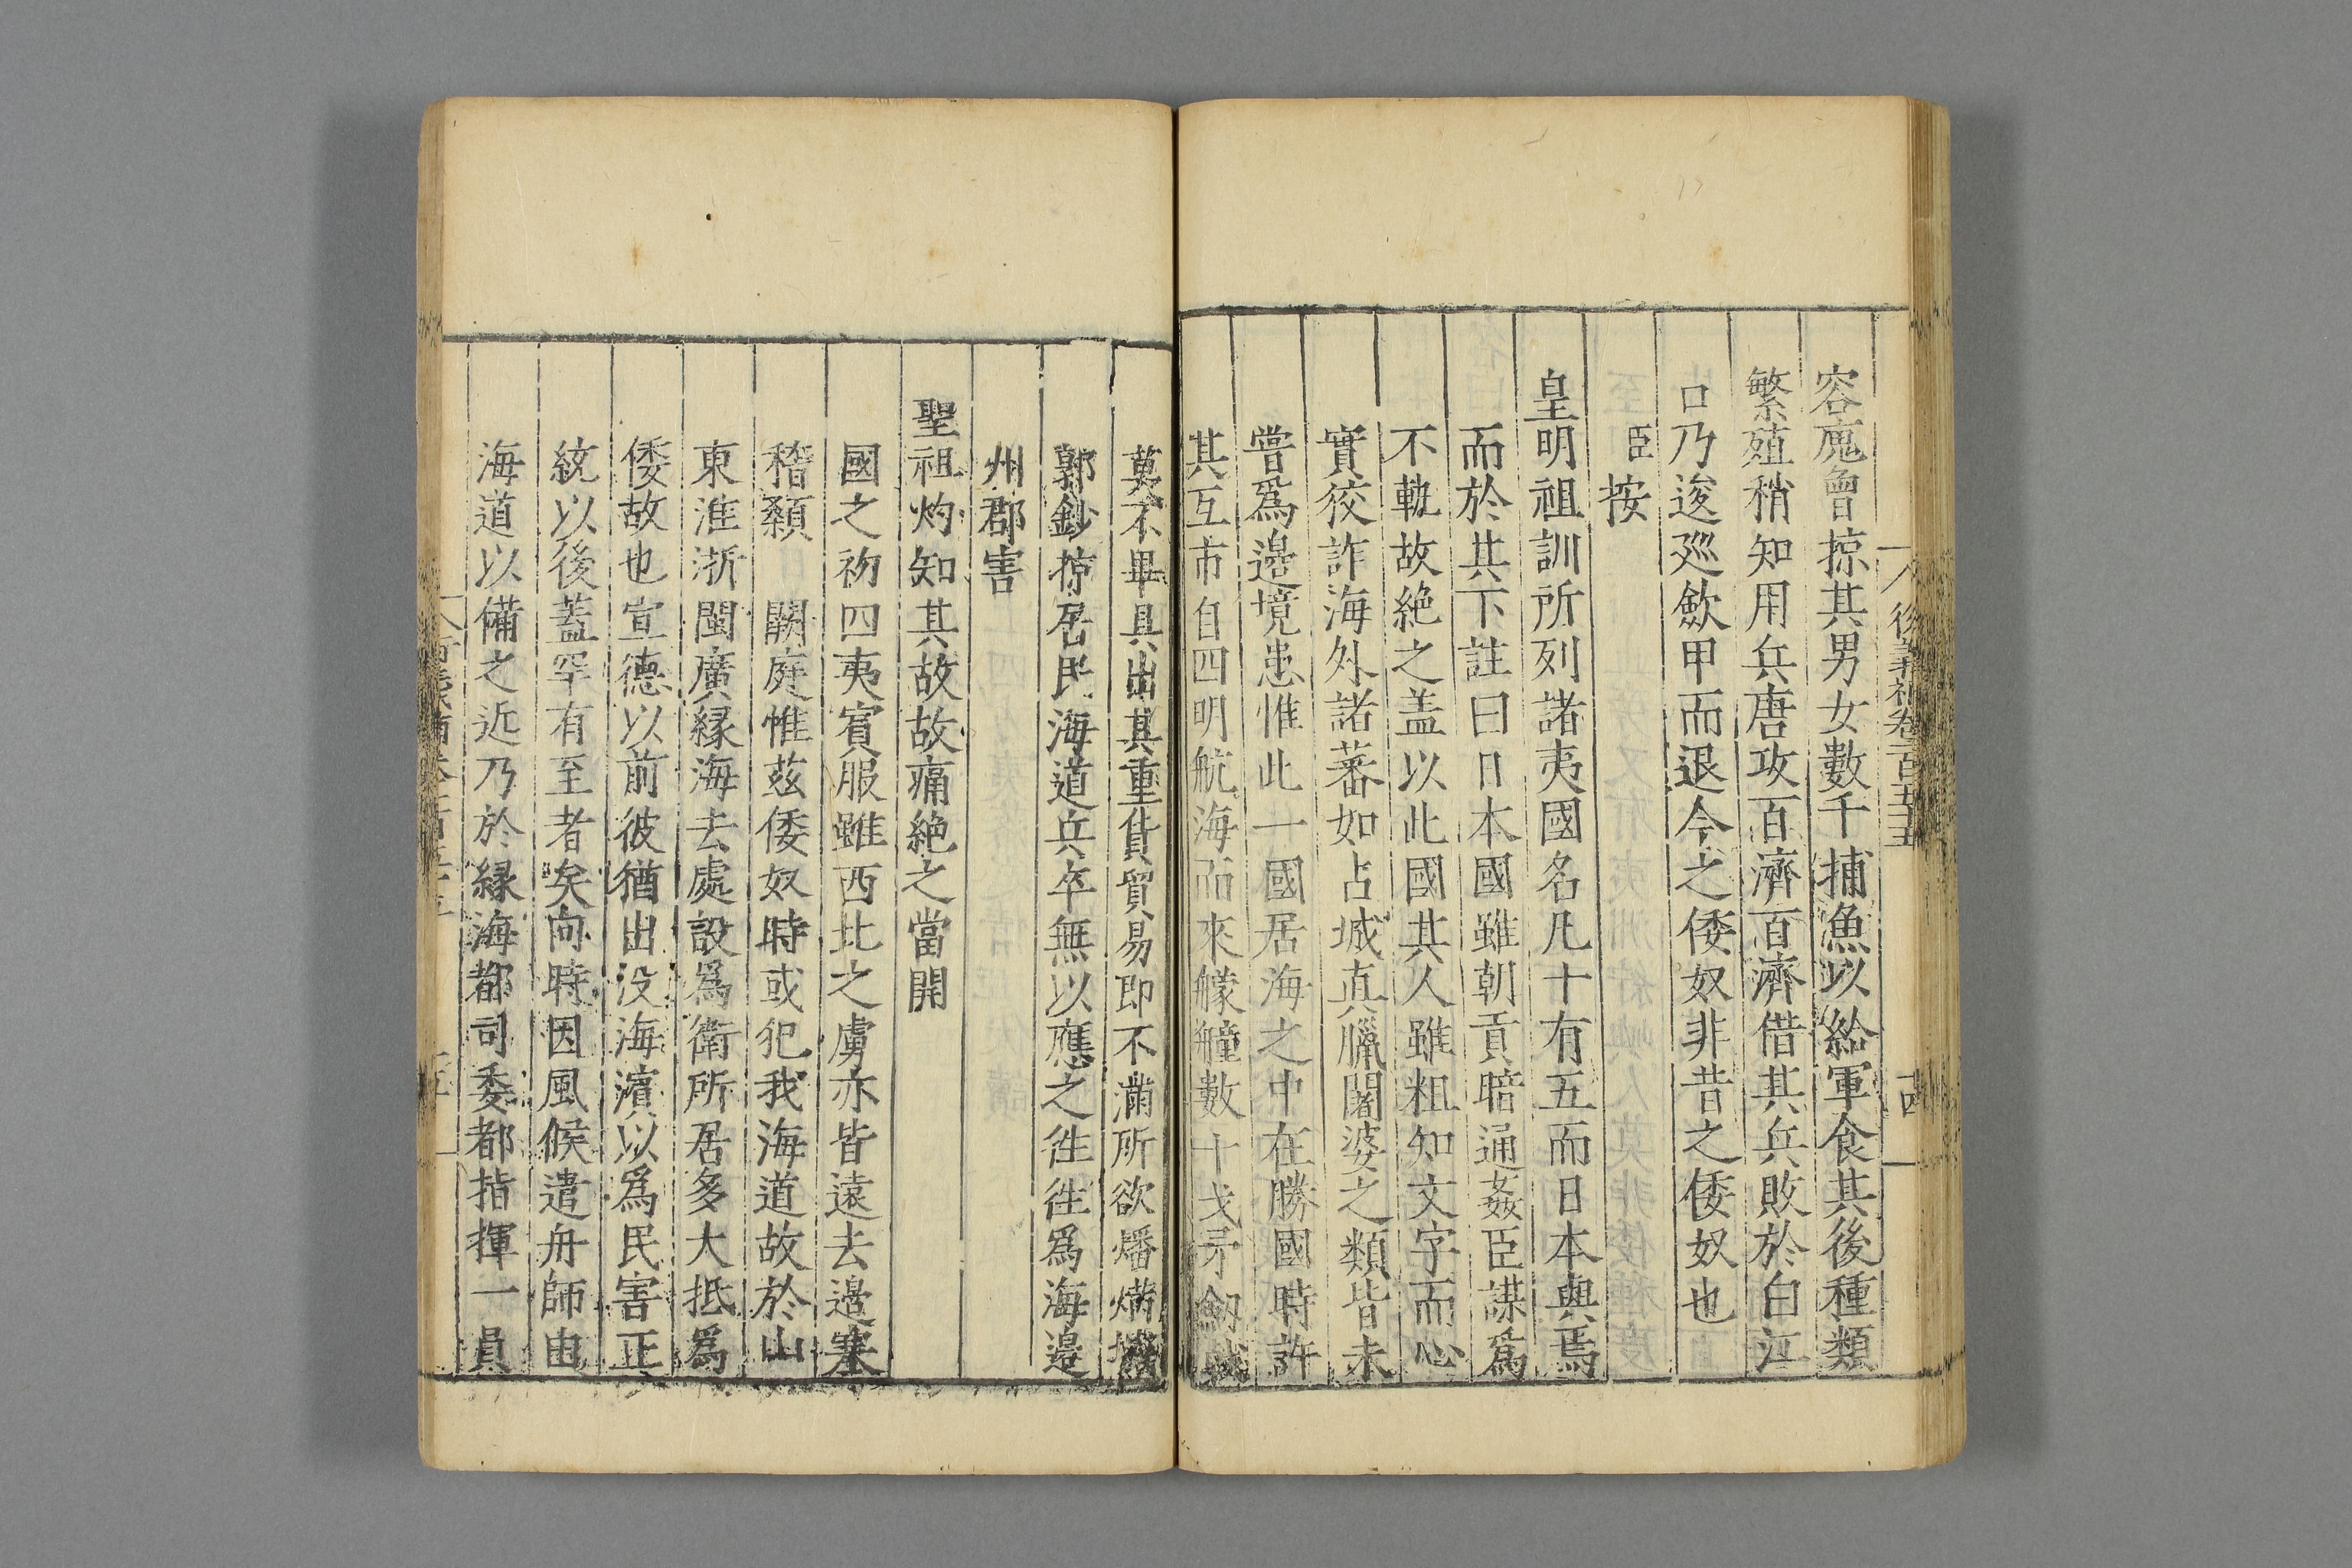 容廆曾掠其男女數千捕魚以給軍食其後種類
繁殖稍知用兵唐攻百濟百濟借其兵敗於白江
口乃逡廵歛甲而退今之倭奴非昔之倭奴也
臣按
皇明祖訓所列諸夷國名凡十有五而日本與焉
而於其下註曰日本國雖朝貢暗通姦臣謀爲
不軌故絶之盖以此國其人雖粗知文字而心
實狡詐海外諸蕃如占城真臘闍婆之類皆未
嘗爲邉境患惟此一國居海之中在勝國時許
其互市自四明航海而來艨艟數十戈矛劒
莫不畢具出其重貨貿易即不滿所欲燔焫城
郭鈔掠居民海道兵卒無以應之徃徃爲海邉
州郡害
聖祖灼知其故故痛絶之當開
國之初四夷賓服雖西北之虜亦皆遠去邉塞
稽顙 闕庭惟兹倭奴時或犯我海道故於山
東淮浙閩廣縁海去處設爲衛所居多大抵爲
倭故也宣德以前彼猶出没海濵以爲民害正
統以後蓋罕有至者矣向時因風候遣舟師由
海道以備之近乃於縁海都司委都指揮一員